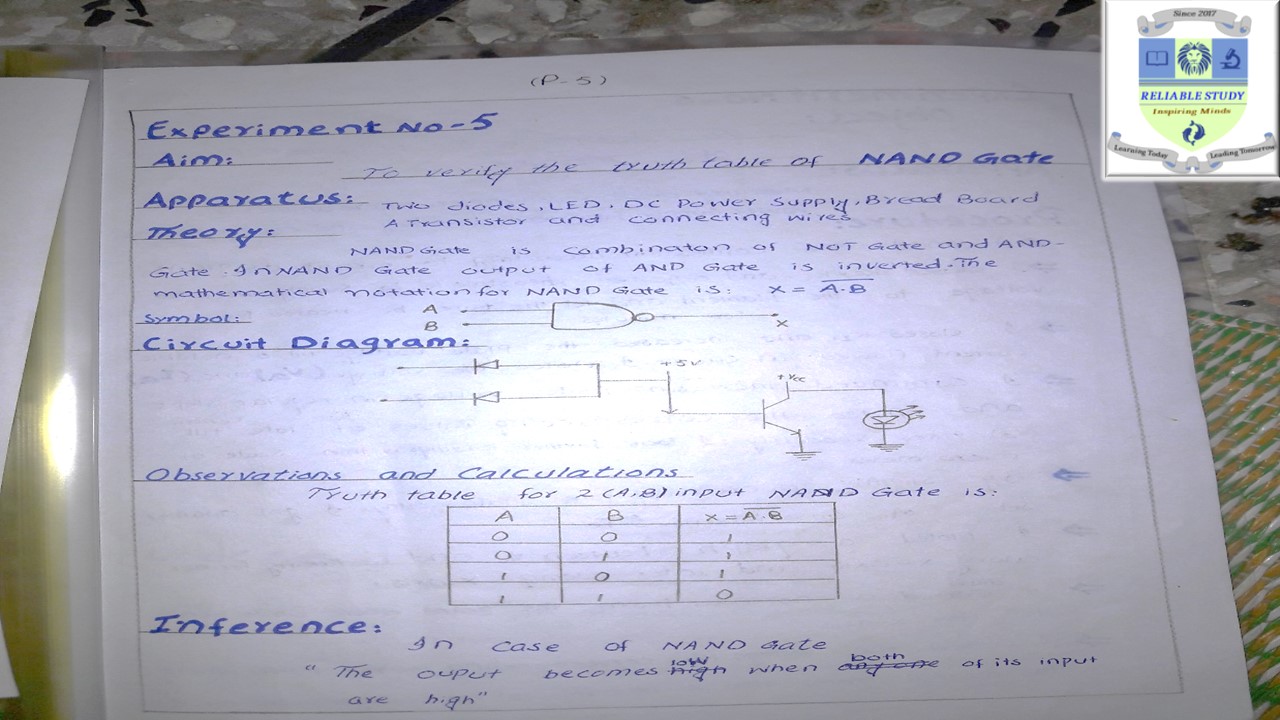 (P-5)
Since 2017
RELIABLE STUDY
Inspiring Minds
Learning Today
Leading Tomorrow
Experiment No-5
Aim:
To verify the truth table of NAND Gate
Apparatus: Two diodes, LED, DC Power Supply, Bread Board
A Transistor and connecting wires
Theory:
NAND Gate is Combinaton of NOT Gate and AND-
Gate. In NAND Gate output of AND Gate is inverted. The
mathematical notation for NAND Gate is: X = A̅·̅B̅
Symbol:
A
B
X
Circuit Diagram:
+5V
+Vcc
Observations and Calculations
Truth table for 2 (A,B) input NAND Gate is:
A B X = A̅·̅B̅
0 0 1
0 1 1
1 0 1
1 1 0
Inference:
In case of NAND Gate
low both
"The ouput becomes high when any one of its input
are high"